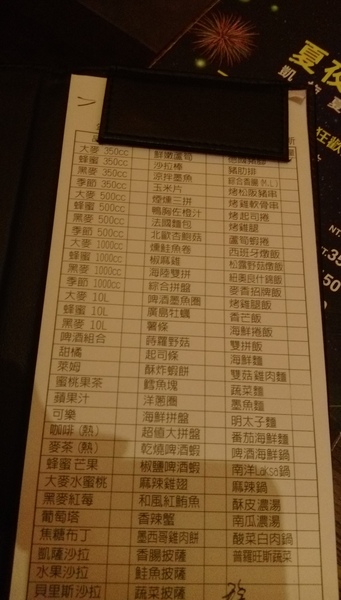 夏夜
狂歡
大麥 350cc 鮮嫩蘆筍
蜂蜜 350cc 沙拉棒 豬肋排
黑麥 350cc 涼拌墨魚
季節 350cc 玉米片 烤松阪豬串
大麥 500cc 煙燻三拼 烤雞軟骨串
蜂蜜 500cc 鴨胸佐橙汁 烤起司捲
黑麥 500cc 法國麵包 烤雞腿
季節 500cc 北歐杏鮑菇 蘆筍蝦捲
大麥 1000cc 燻鮭魚卷 西班牙燉飯
蜂蜜 1000cc 椒麻雞 松露野菇燉飯
黑麥 1000cc 海陸雙拼 紐奧良什錦飯
季節 1000cc 綜合拼盤 麥香培根飯
大麥 10L 啤酒墨魚圈 烤雞腿飯
蜂蜜 10L 廣島牡蠣 香芒飯
黑麥 10L 薯條 海鮮捲飯
啤酒組合 蒔蘿野菇 雙拼飯
甜橘 起司條 海鮮麵
萊姆 酥炸蝦餅 雙菇雞肉麵
蜜桃果茶 鱈魚塊 蔬菜麵
蘋果汁 洋蔥圈 墨魚麵
可樂 海鮮拼盤 明太子麵
咖啡(熱) 超值大拼盤 番茄海鮮麵
麥茶(熱) 乾燒啤酒蝦 啤酒海鮮鍋
蜂蜜芒果 椒鹽啤酒蝦 南洋Laksa鍋
大麥水蜜桃 麻辣雞翅 麻辣鍋
黑麥紅莓 和風紅鮪魚 酥皮濃湯
葡萄塔 香辣蟹 南瓜濃湯
焦糖布丁 墨西哥雞肉餅 酸菜白肉鍋
凱薩沙拉 香腸披薩 普羅旺斯蔬菜
水果沙拉 鮭魚披薩
貝里斯沙拉 蔬菜披薩